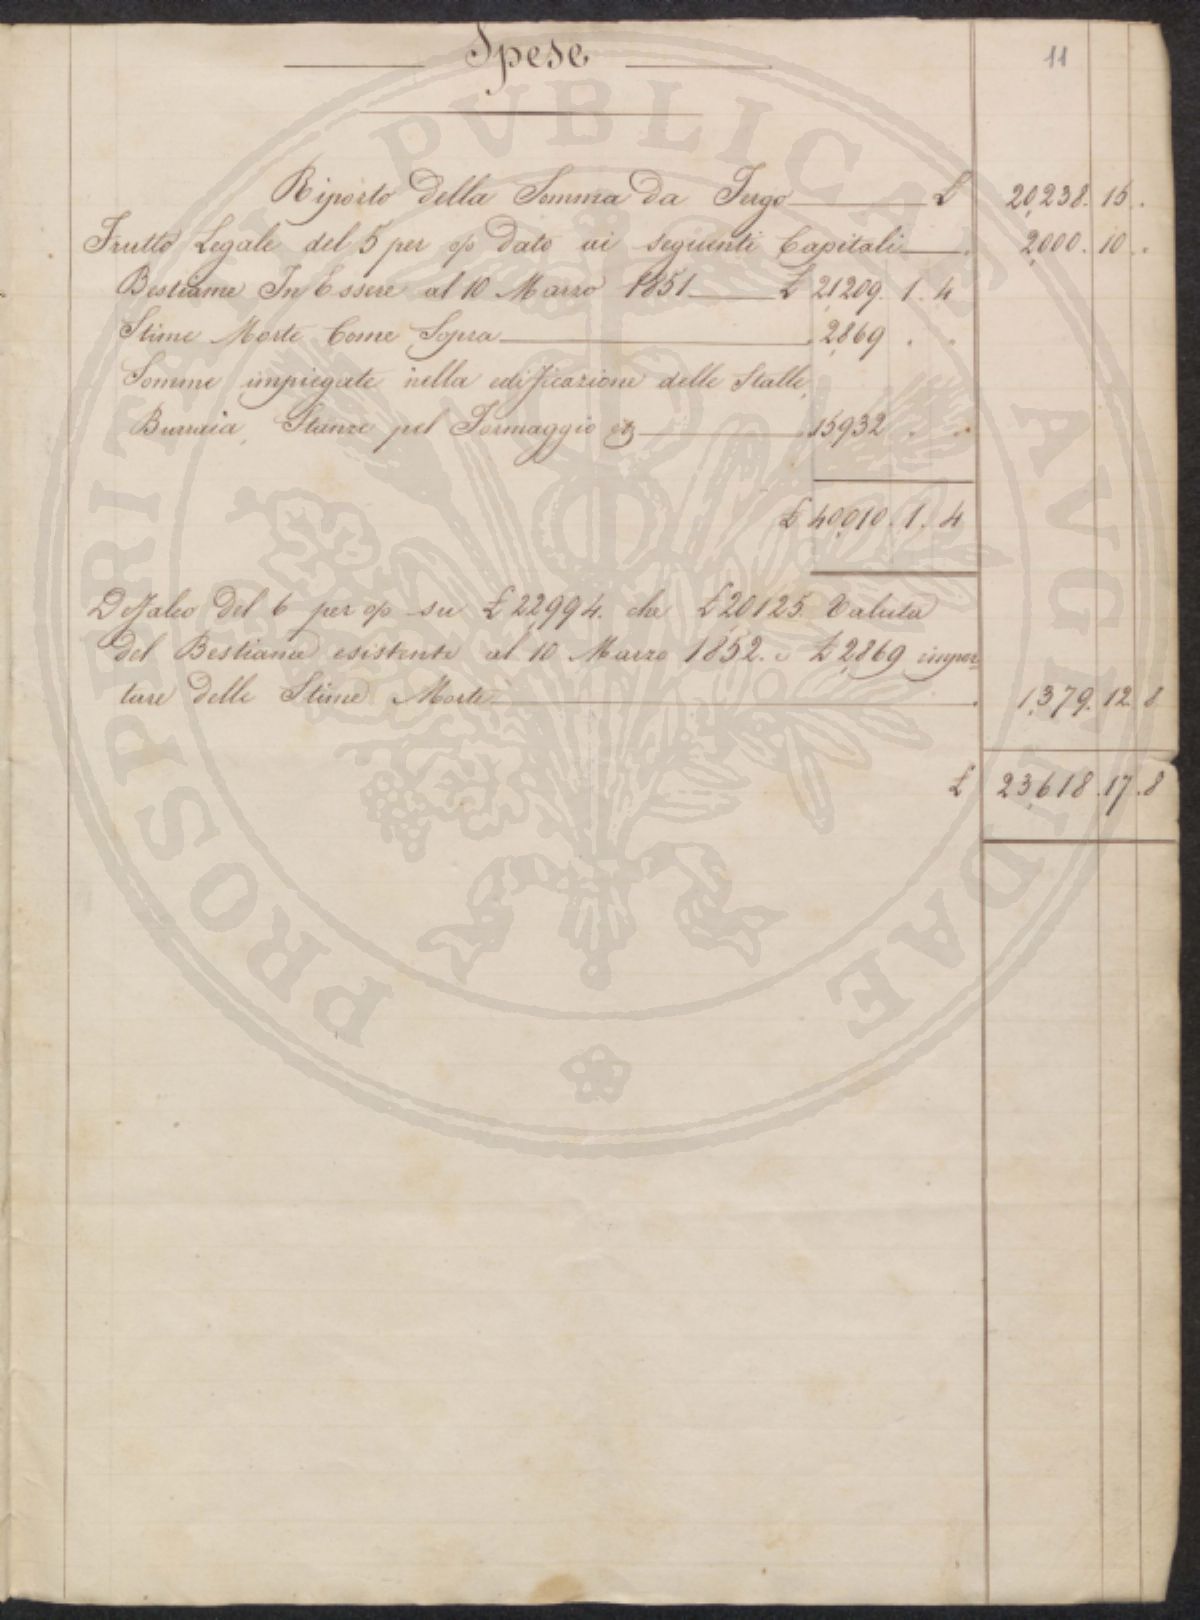 Spese
11
Riporto della Somma da Tergo £ 20,238. 15 .
Frutto Legale del 5 per % dato ai seguenti Capitali . 2,000. 10 ..
Bestiame In Essere al 10 Marzo 1851 £ 21,209. 1. 4
Stime Morte Come Sopra . 2,869 . .
Somme impiegate nella edificazione delle Stalle,
Burraia, Stanze pel Formaggio . 15,932 . .
£ 40,010. 1. 4
Defalco del 6 per % su £ 22,994. che £ 20125. Valuta
del Bestiame esistente al 10 Marzo 1852. e £ 2,869 impor=
tare delle Stime Morte . 1,379. 12 8
£ 23,618. 17. 8
PROSPERITATI PVBLICAE AVGENDAE